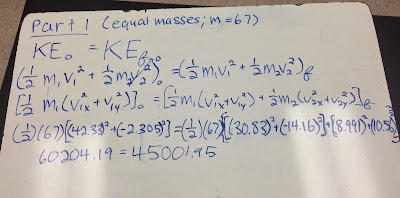 Part 1 (equal masses; m=67)
KE₀ = KE_f
(½m₁v₁² + ½m₂v₂²)₀ = (½m₁v₁² + ½m₂v₂²)_f
[½m₁(v₁ₓ²+v₁ᵧ²)]₀ = [½m₁(v₁ₓ²+v₁ᵧ²) + ½m₂(v₂ₓ²+v₂ᵧ²)]_f
(½)(67)[(42.33)²+(-2.305)²] = (½)(67)[(30.83)²+(-14.16)²]+[8.991)²+(10.56)²]
60204.19 = 45001.95